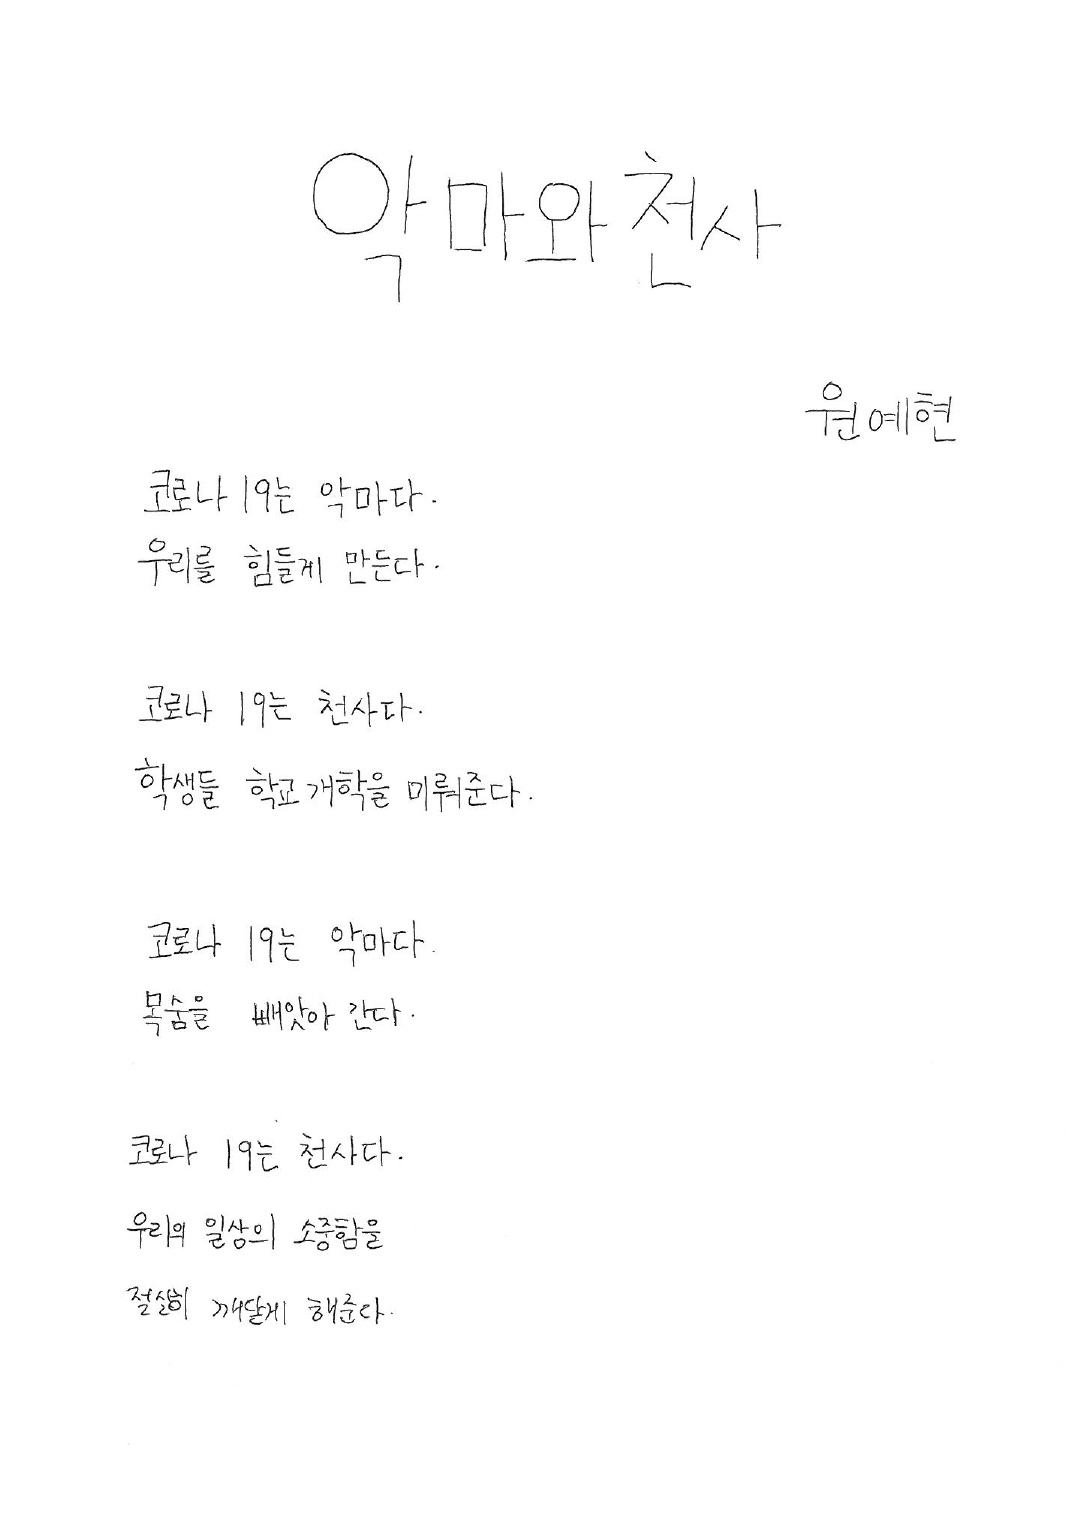 악마와 천사
원예현
코로나 19는 악마다.
우리를 힘들게 만든다.
코로나 19는 천사다.
학생들 학교 개학을 미뤄준다.
코로나 19는 악마다.
목숨을 빼앗아 간다.
코로나 19는 천사다.
우리의 일상의 소중함을
깨닫게 해준다.